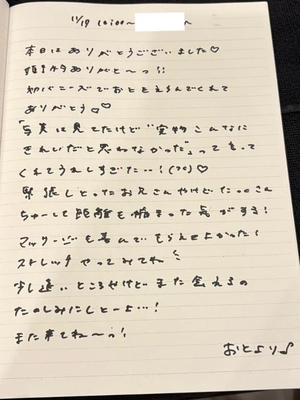 11/19 10:00〜
本日はありがとうございました♡
頭物ありがと〜っ!!
初バニーズでおとをえらんでくれて
ありがとう♡
「写真は見てたけど"実物こんなに
きれいだと思わなかった"」って言って
くれてうれしすぎた…!(つ°)♡
緊張しとったお兄さんやけどたっくさん
ちゅーして距離も縮まった気がする!
マッサージも喜んでもらえてよかった!
ストレッチやってみてね!
少し遠いところやけどまた会えるの
たのしみにしとーよ…!
また来てね〜っ!
おとより♪